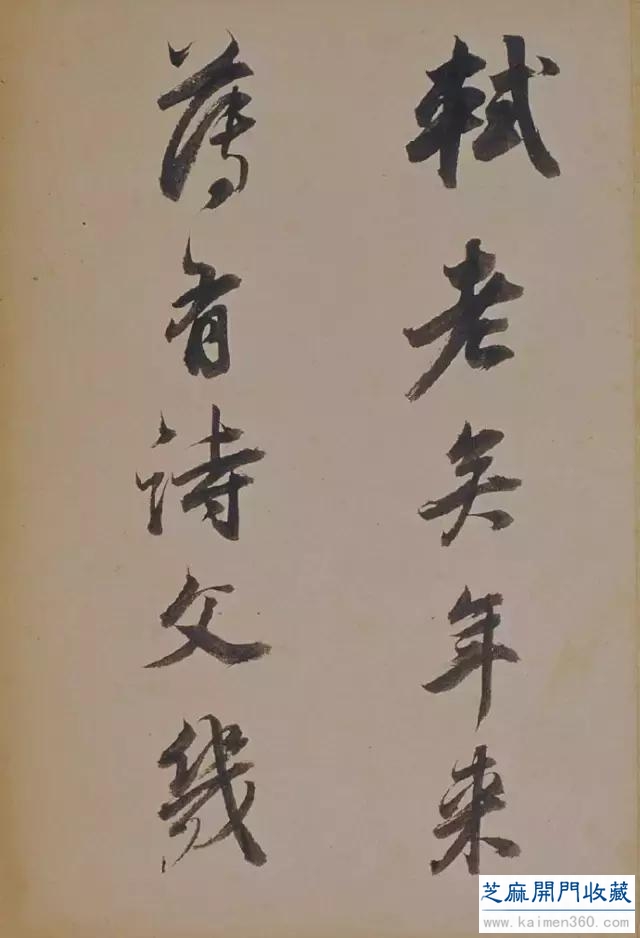 軾老矣年來
薄有詩文幾
芝麻開門收藏
www.kaimen360.com